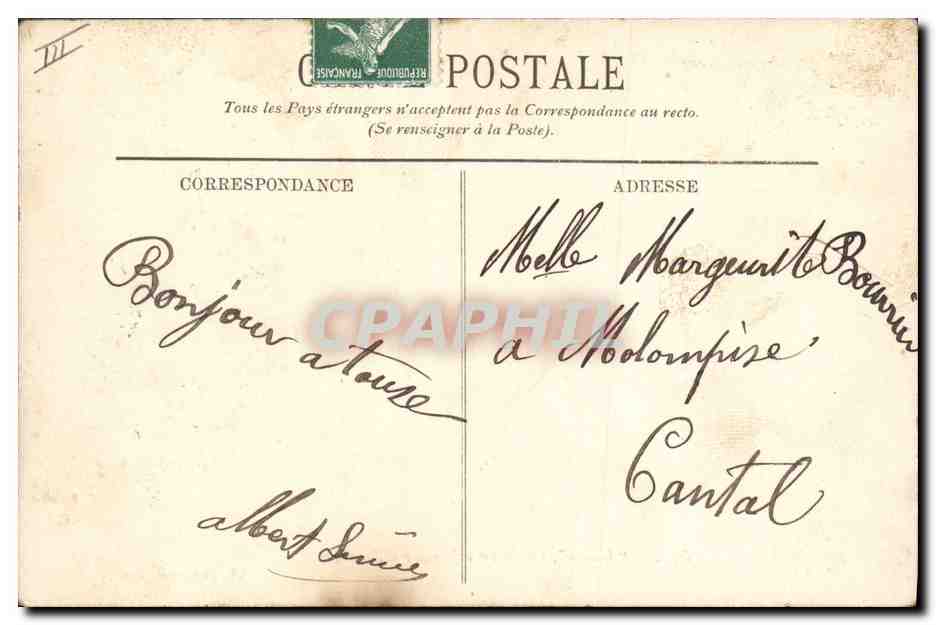 III
RÉPUBLIQUE FRANÇAISE
POSTALE
Tous les Pays étrangers n'acceptent pas la Correspondance au recto.
(Se renseigner à la Poste).
CORRESPONDANCE
ADRESSE
Melle Margeurite Bouvier
a Molompise
Cantal
Bonjour a touse
albert
CPAPHIL